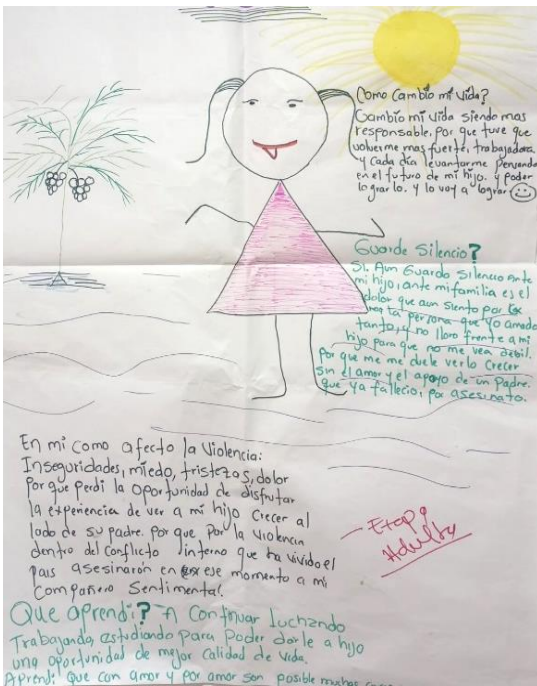 Como Cambio mi vida?
Cambio mi vida siendo mas
responsable, por que tuve que
volverme mas fuerte, trabajadora
y cada día levantarme pensando
en el futuro de mi hijo. y poder
lograrlo. y lo voy a lograr
Guarde Silencio?
Si. Aun Guardo Silencio Ante
mi hijo, ante mi familia es el
dolor que aun siento por
persona que yo amado
tanto, y no lloro frente a mi
hijo para que no me vea debil.
Por que me me duele verlo Crecer
sin el amor y el apoyo de un Padre.
que ya fallecio, por asesinato.
En mi como afecto la Violencia:
Inseguridades, miedo, tristezas, dolor
Por que perdi la oportunidad de disfrutar
la experiencia de ver a mi hijo Crecer al
lado de su padre. Por que Por la Violencia
dentro del Conflicto interno que ha vivido el
pais asesinaron en ese momento a mi
Compañero Sentimental.
- Etapa
Adulta
Que aprendi? A Continuar luchando
Trabajando, estudiando para Poder darle a hijo
una oportunidad de mejor Calidad de Vida.
Aprendi Que con amor y por amor son posible muchas